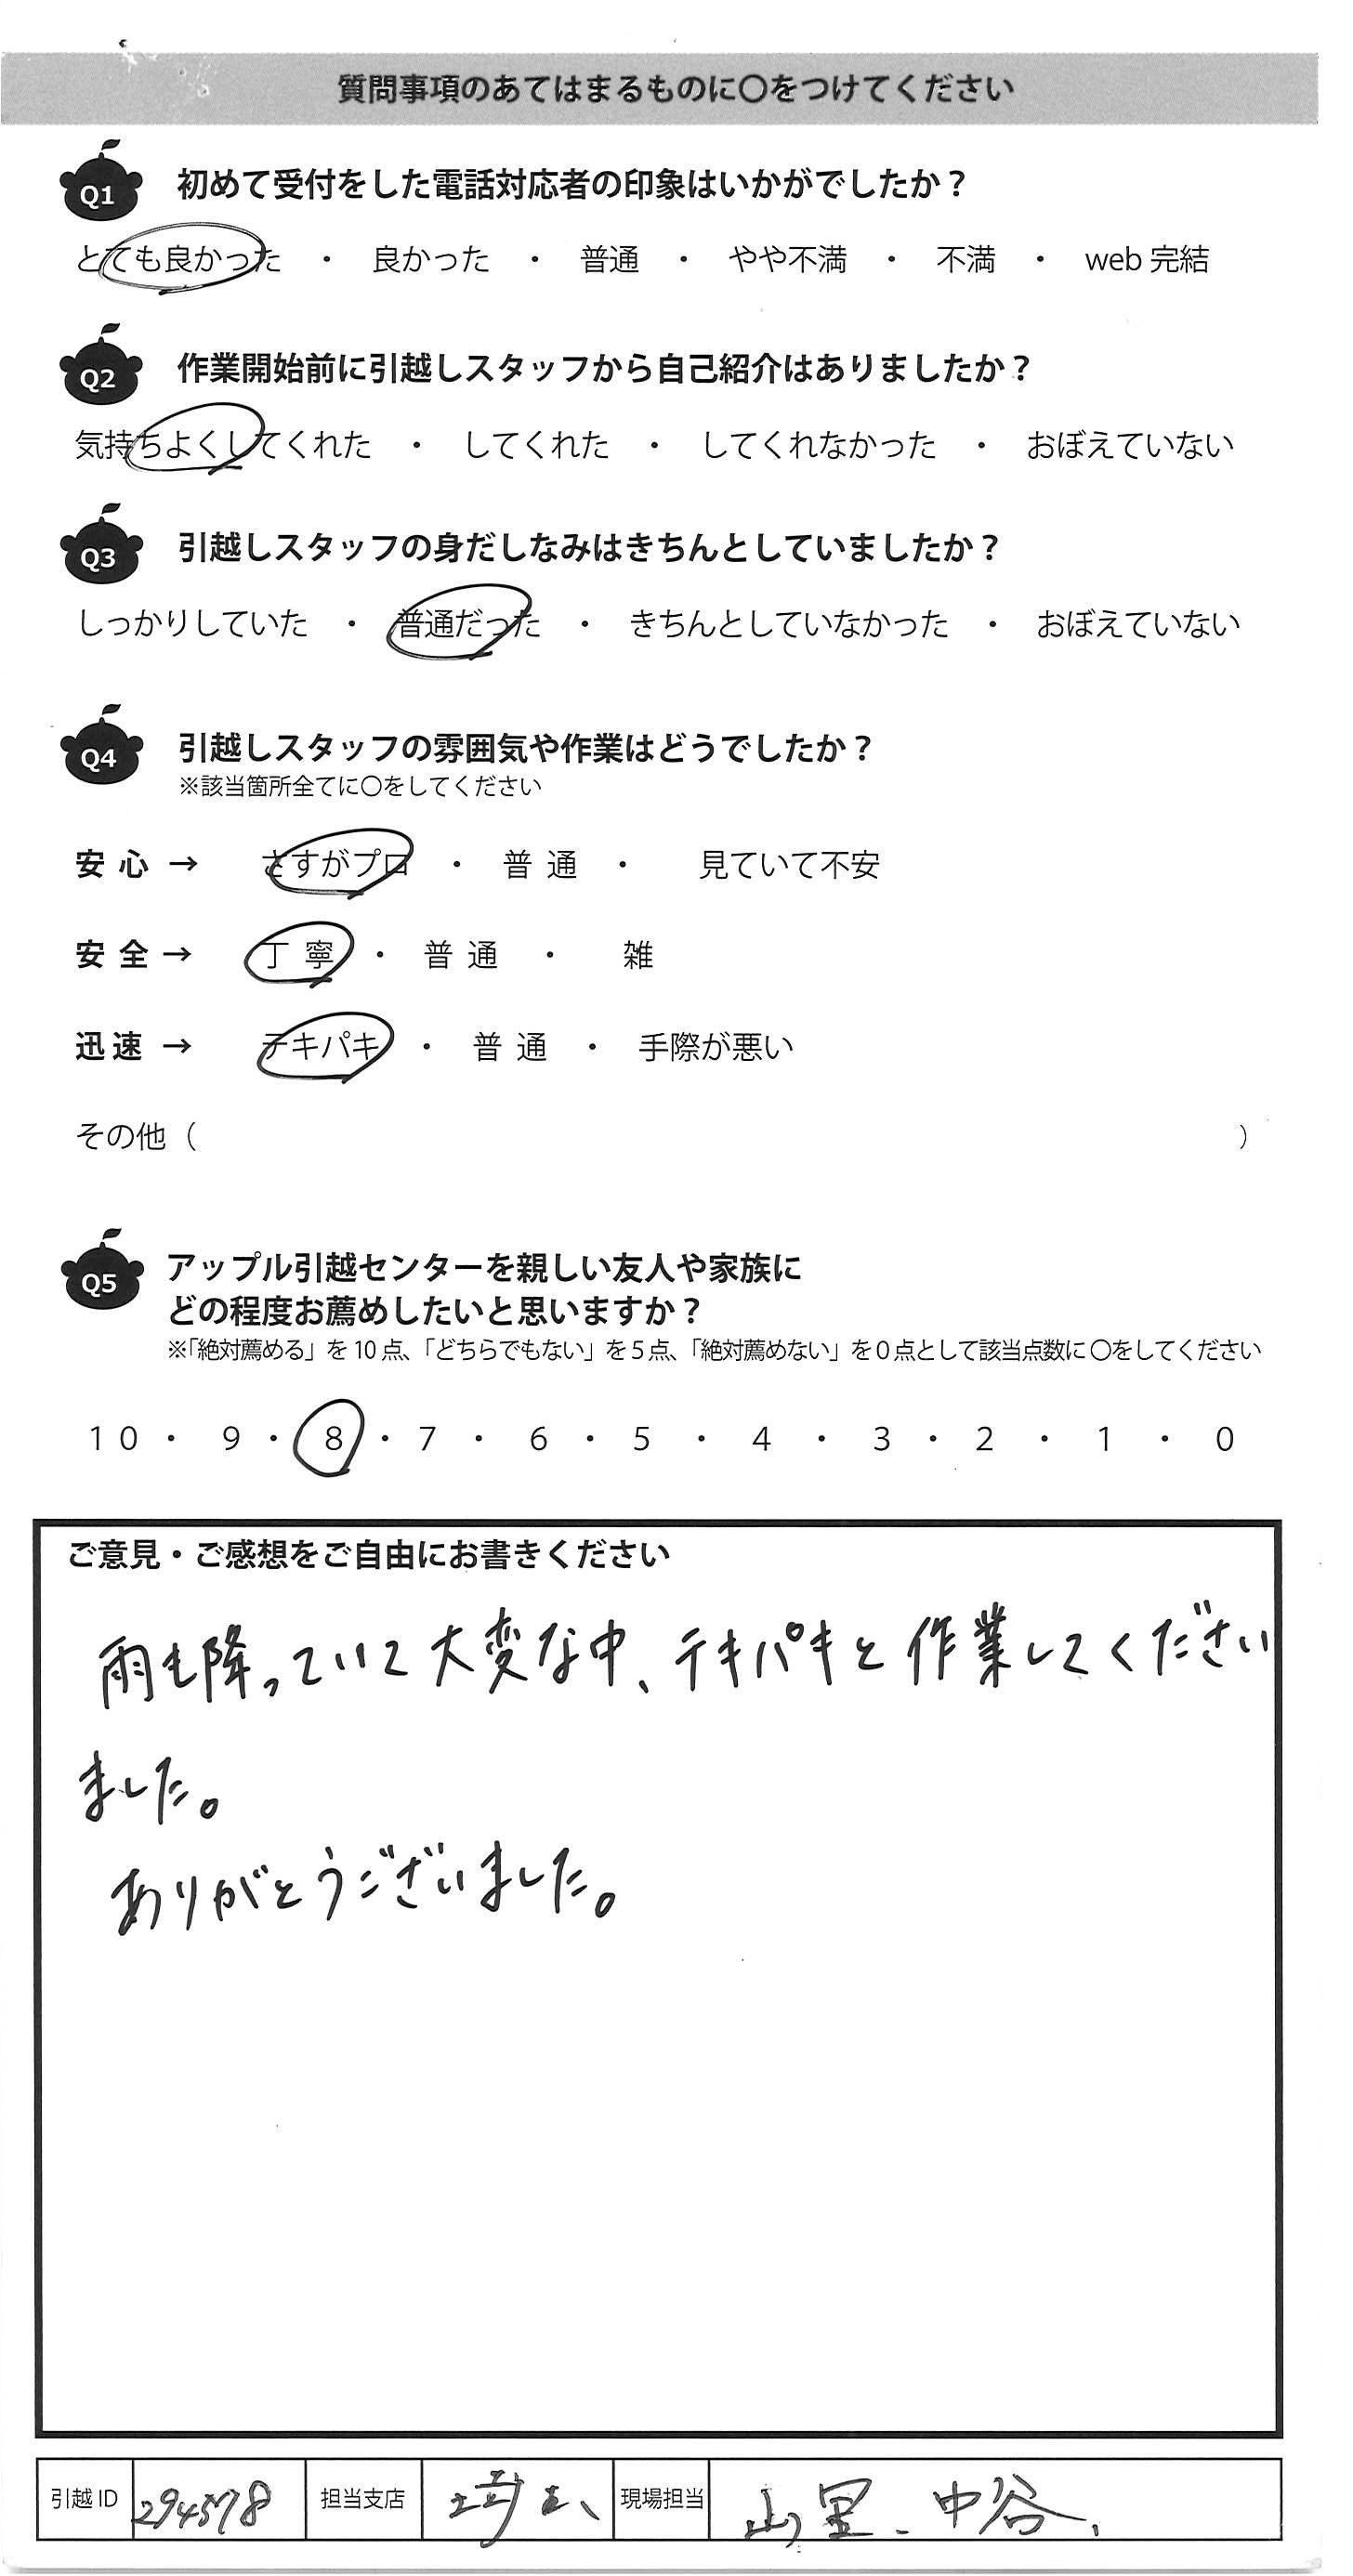 質問事項のあてはまるものに〇をつけてください
Q1 初めて受付をした電話対応者の印象はいかがでしたか？
とても良かった ・ 良かった ・ 普通 ・ やや不満 ・ 不満 ・ web 完結
Q2 作業開始前に引越しスタッフから自己紹介はありましたか？
気持ちよくしてくれた ・ してくれた ・ してくれなかった ・ おぼえていない
Q3 引越しスタッフの身だしなみはきちんとしていましたか？
しっかりしていた ・ 普通だった ・ きちんとしていなかった ・ おぼえていない
Q4 引越しスタッフの雰囲気や作業はどうでしたか？
※該当箇所全てに〇をしてください
安心 → さすがプロ ・ 普通 ・ 見ていて不安
安全 → 丁寧 ・ 普通 ・ 雑
迅速 → テキパキ ・ 普通 ・ 手際が悪い
その他（ ）
Q5 アップル引越センターを親しい友人や家族に
どの程度お薦めしたいと思いますか？
※「絶対薦める」を 10 点、「どちらでもない」を 5 点、「絶対薦めない」を 0 点として該当点数に 〇をしてください
10 ・ 9 ・ 8 ・ 7 ・ 6 ・ 5 ・ 4 ・ 3 ・ 2 ・ 1 ・ 0
ご意見・ご感想をご自由にお書きください
雨も降っていて大変な中、テキパキと作業してください
ました。
ありがとうございました。
引越 ID 294578 担当支店 現場担当 中谷